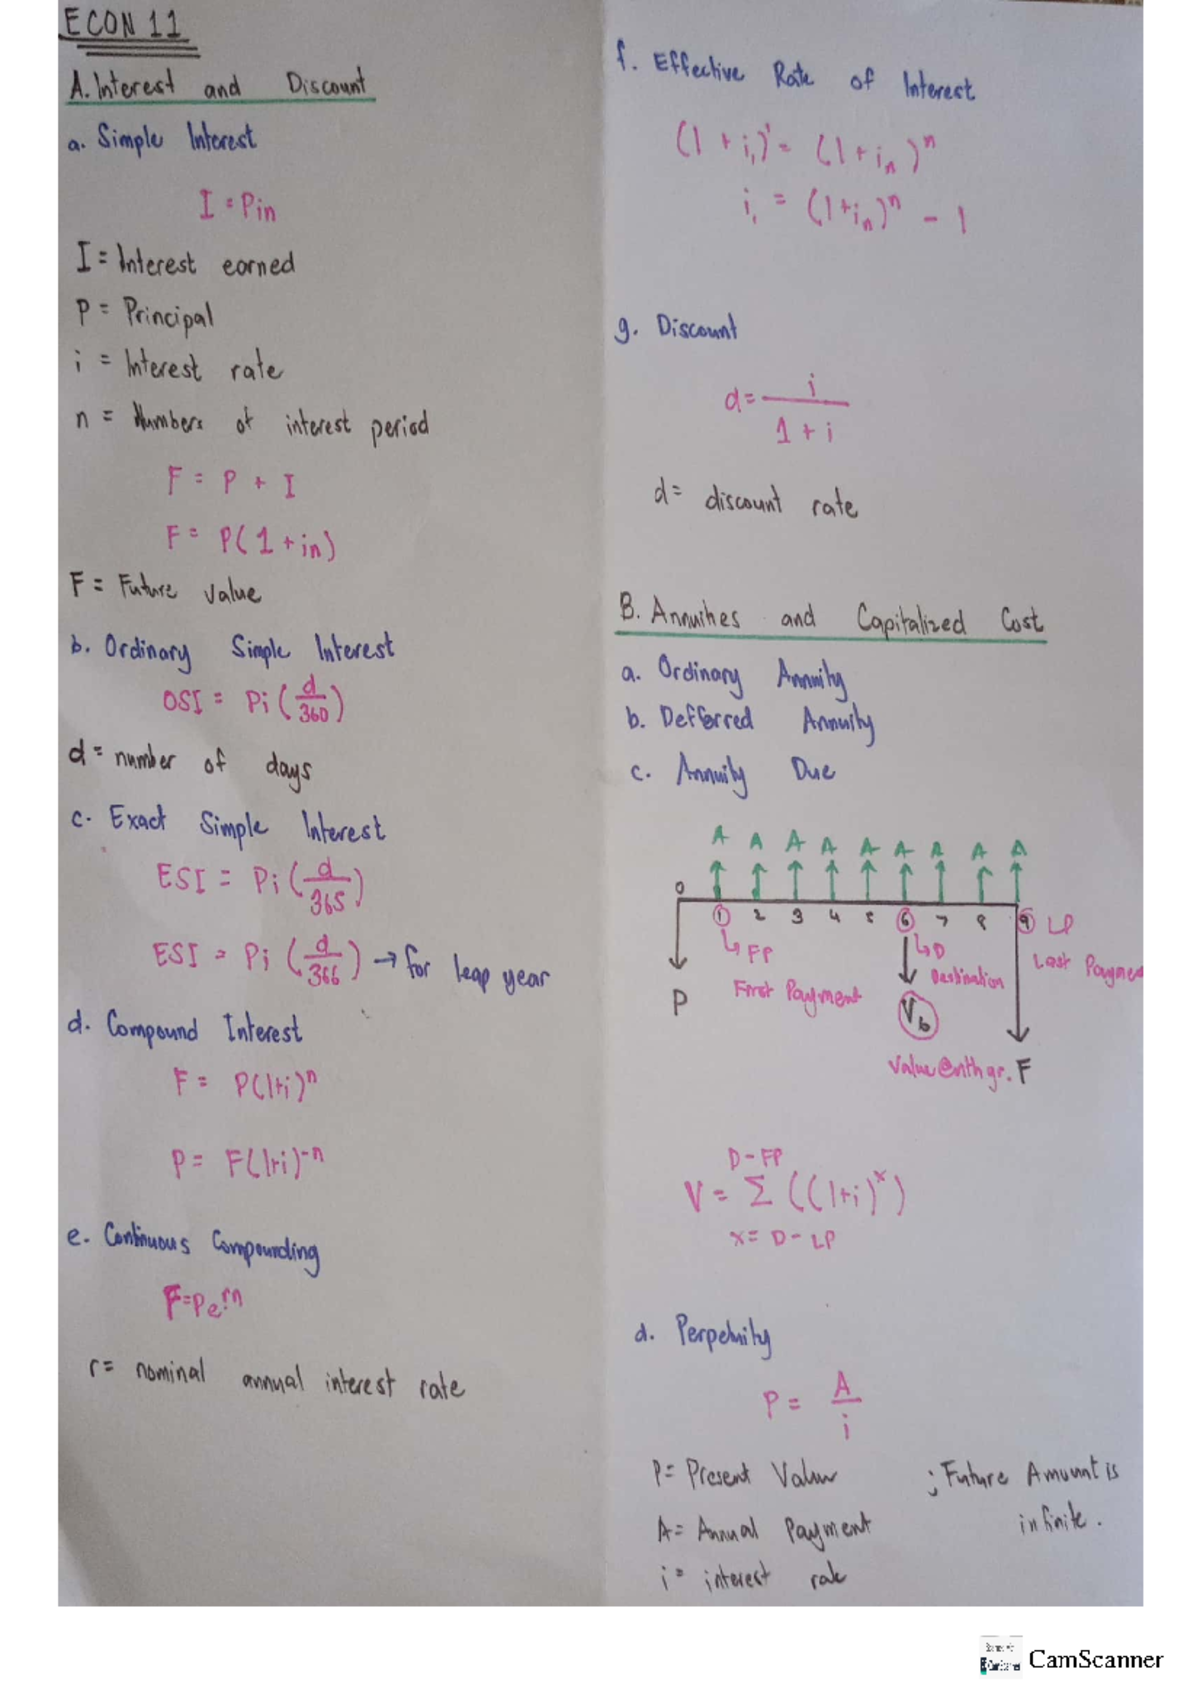 ECON 11
A. Interest and Discount
a. Simple Interest
I = Pin
I = Interest earned
P = Principal
i = Interest rate
n = Numbers of interest period
F = P + I
F = P(1 + in)
F = Future value
b. Ordinary Simple Interest
OSI = Pi (d/360)
d = number of days
c. Exact Simple Interest
ESI = Pi (d/365)
ESI = Pi (d/366) → for leap year
d. Compound Interest
F = P(1+i)^n
P = F(1+i)^-n
e. Continuous Compounding
F=Pe^rn
r = nominal annual interest rate
f. Effective Rate of Interest
(1 + i₁)^1 = (1 + iₙ)^n
i₁ = (1+iₙ)^n - 1
g. Discount
d = i/(1 + i)
d = discount rate
B. Annuities and Capitalized Cost
a. Ordinary Annuity
b. Defferred Annuity
c. Annuity Due
A A A A A A A A A
0 1 2 3 4 5 6 7 8 9 LP
↳ FP ↳ D Last Paymen
First Payment Destination
P V₆
Value@nth yr. F
D - FP
V = Σ ((1+i)^x)
x = D - LP
d. Perpetuity
P = A/i
P = Present Value ; Future Amount is
A = Annual Payment infinite.
i = interest rate
CamScanner